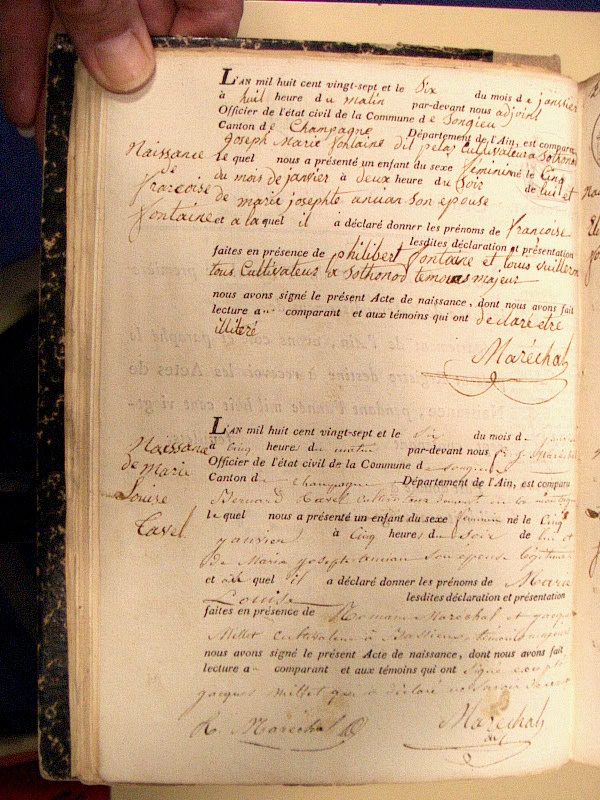 L'AN mil huit cent vingt-sept et le Six du mois de janvier
à huit heure du matin par-devant nous adjoint
Officier de l'état civil de la Commune de Songieu
Canton de Champagne Département de l'Ain, est comparu
Joseph Marie fontaine dit pelaz Cultivateur a Sothonod
Naissance
de
francoise
fontaine
le quel nous a présenté un enfant du sexe féminin né le Cinq
du mois de janvier à deux heure du Soir de lui et
de marie josephte ancian son epouse
et a la quel il a déclaré donner les prénoms de françoise
lesdites déclaration et présentation
faites en présence de philibert fontaine et louis vuilleron
tous Cultivateur a Sothonod temoins majeur
nous avons signé le présent Acte de naissance, dont nous avons fait
lecture au comparant et aux témoins qui ont declaré etre
illiteré
Maréchal
L'AN mil huit cent vingt-sept et le Six du mois de
à Cinq heure du matin par-devant nous
Officier de l'état civil de la Commune de Songieu
Canton de Champagne Département de l'Ain, est comparu
Bernard Tavel cultivateur
Naissance
de Marie
Louise
Tavel
le quel nous a présenté un enfant du sexe féminin né le Cinq
janvier à Cinq heure du Soir de lui et
de Marie josephte ancian Son epouse
et a la quel il a déclaré donner les prénoms de Marie
Louise lesdites déclaration et présentation
faites en présence de Romain Maréchal et jacques
Millet cultivateur à temoins majeurs
nous avons signé le présent Acte de naissance, dont nous avons fait
lecture au comparant et aux témoins qui ont signé excepté
jacques Millet qui a déclaré
R. Maréchal
Maréchal
adj